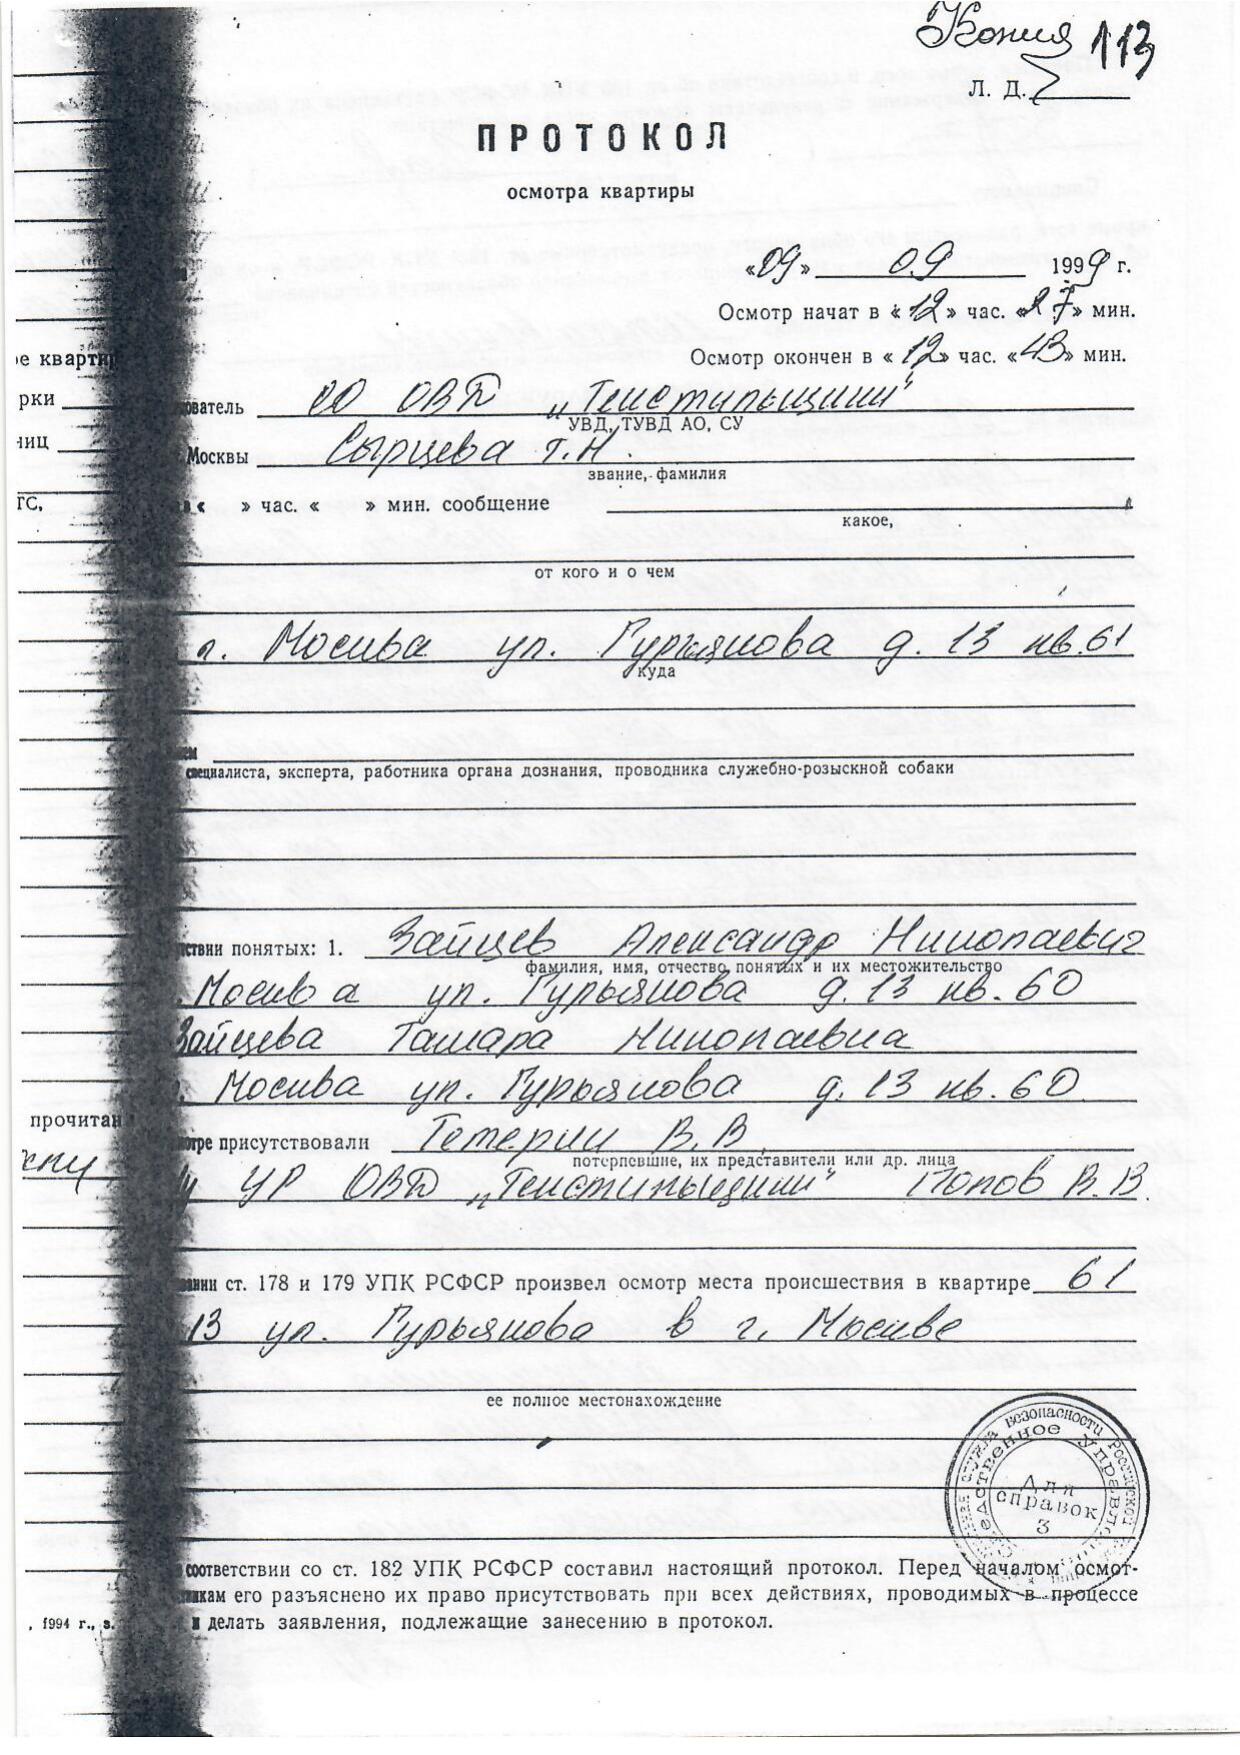 Копия 113
Л. Д.
ПРОТОКОЛ
осмотра квартиры
«09» 09 1999 г.
Осмотр начат в «12» час. «27» мин.
е квартир
Осмотр окончен в «12» час. «43» мин.
рки
ователь СО ОВД „Текстильщики"
УВД, ТУВД АО, СУ
ниц
Москвы Сырцева Т.Н.
звание, фамилия
ГС,
« » час. « » мин. сообщение
какое,
от кого и о чем
г. Москва ул. Гурьянова д. 13 кв. 61
куда
ем
специалиста, эксперта, работника органа дознания, проводника служебно-розыскной собаки
тствии понятых: 1. Зайцев Александр Николаевич
фамилия, имя, отчество понятых и их местожительство
. Москва ул. Гурьянова д. 13 кв. 60
Зайцева Тамара Николаевна
. Москва ул. Гурьянова д. 13 кв. 60
прочитан
отре присутствовали Тетерин В.В.
потерпевшие, их представители или др. лица
УР ОВД „Текстильщики" Попов В.В.
ании ст. 178 и 179 УПК РСФСР произвел осмотр места происшествия в квартире 61
13 ул. Гурьянова в г. Москве
ее полное местонахождение
служба безопасности Российской
Следственное Управление
Для
справок
3
соответствии со ст. 182 УПК РСФСР составил настоящий протокол. Перед началом осмот-
никам его разъяснено их право присутствовать при всех действиях, проводимых в процессе
и делать заявления, подлежащие занесению в протокол.
, 1994 г., з.